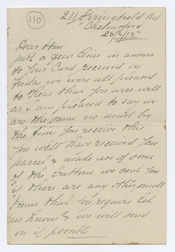 110
211 Springfield Rd
Chelmsford
Dear
Just a few lines in answer
to your Card received on
Friday we were all pleased
to hear you were well
as I am pleased to say we
are the same no doubt by
the time you receive this
you will have received your
parcel & made use of some
of the buttons we sent you
if there are any other small
items that you require let
us know & we will send
on if possible